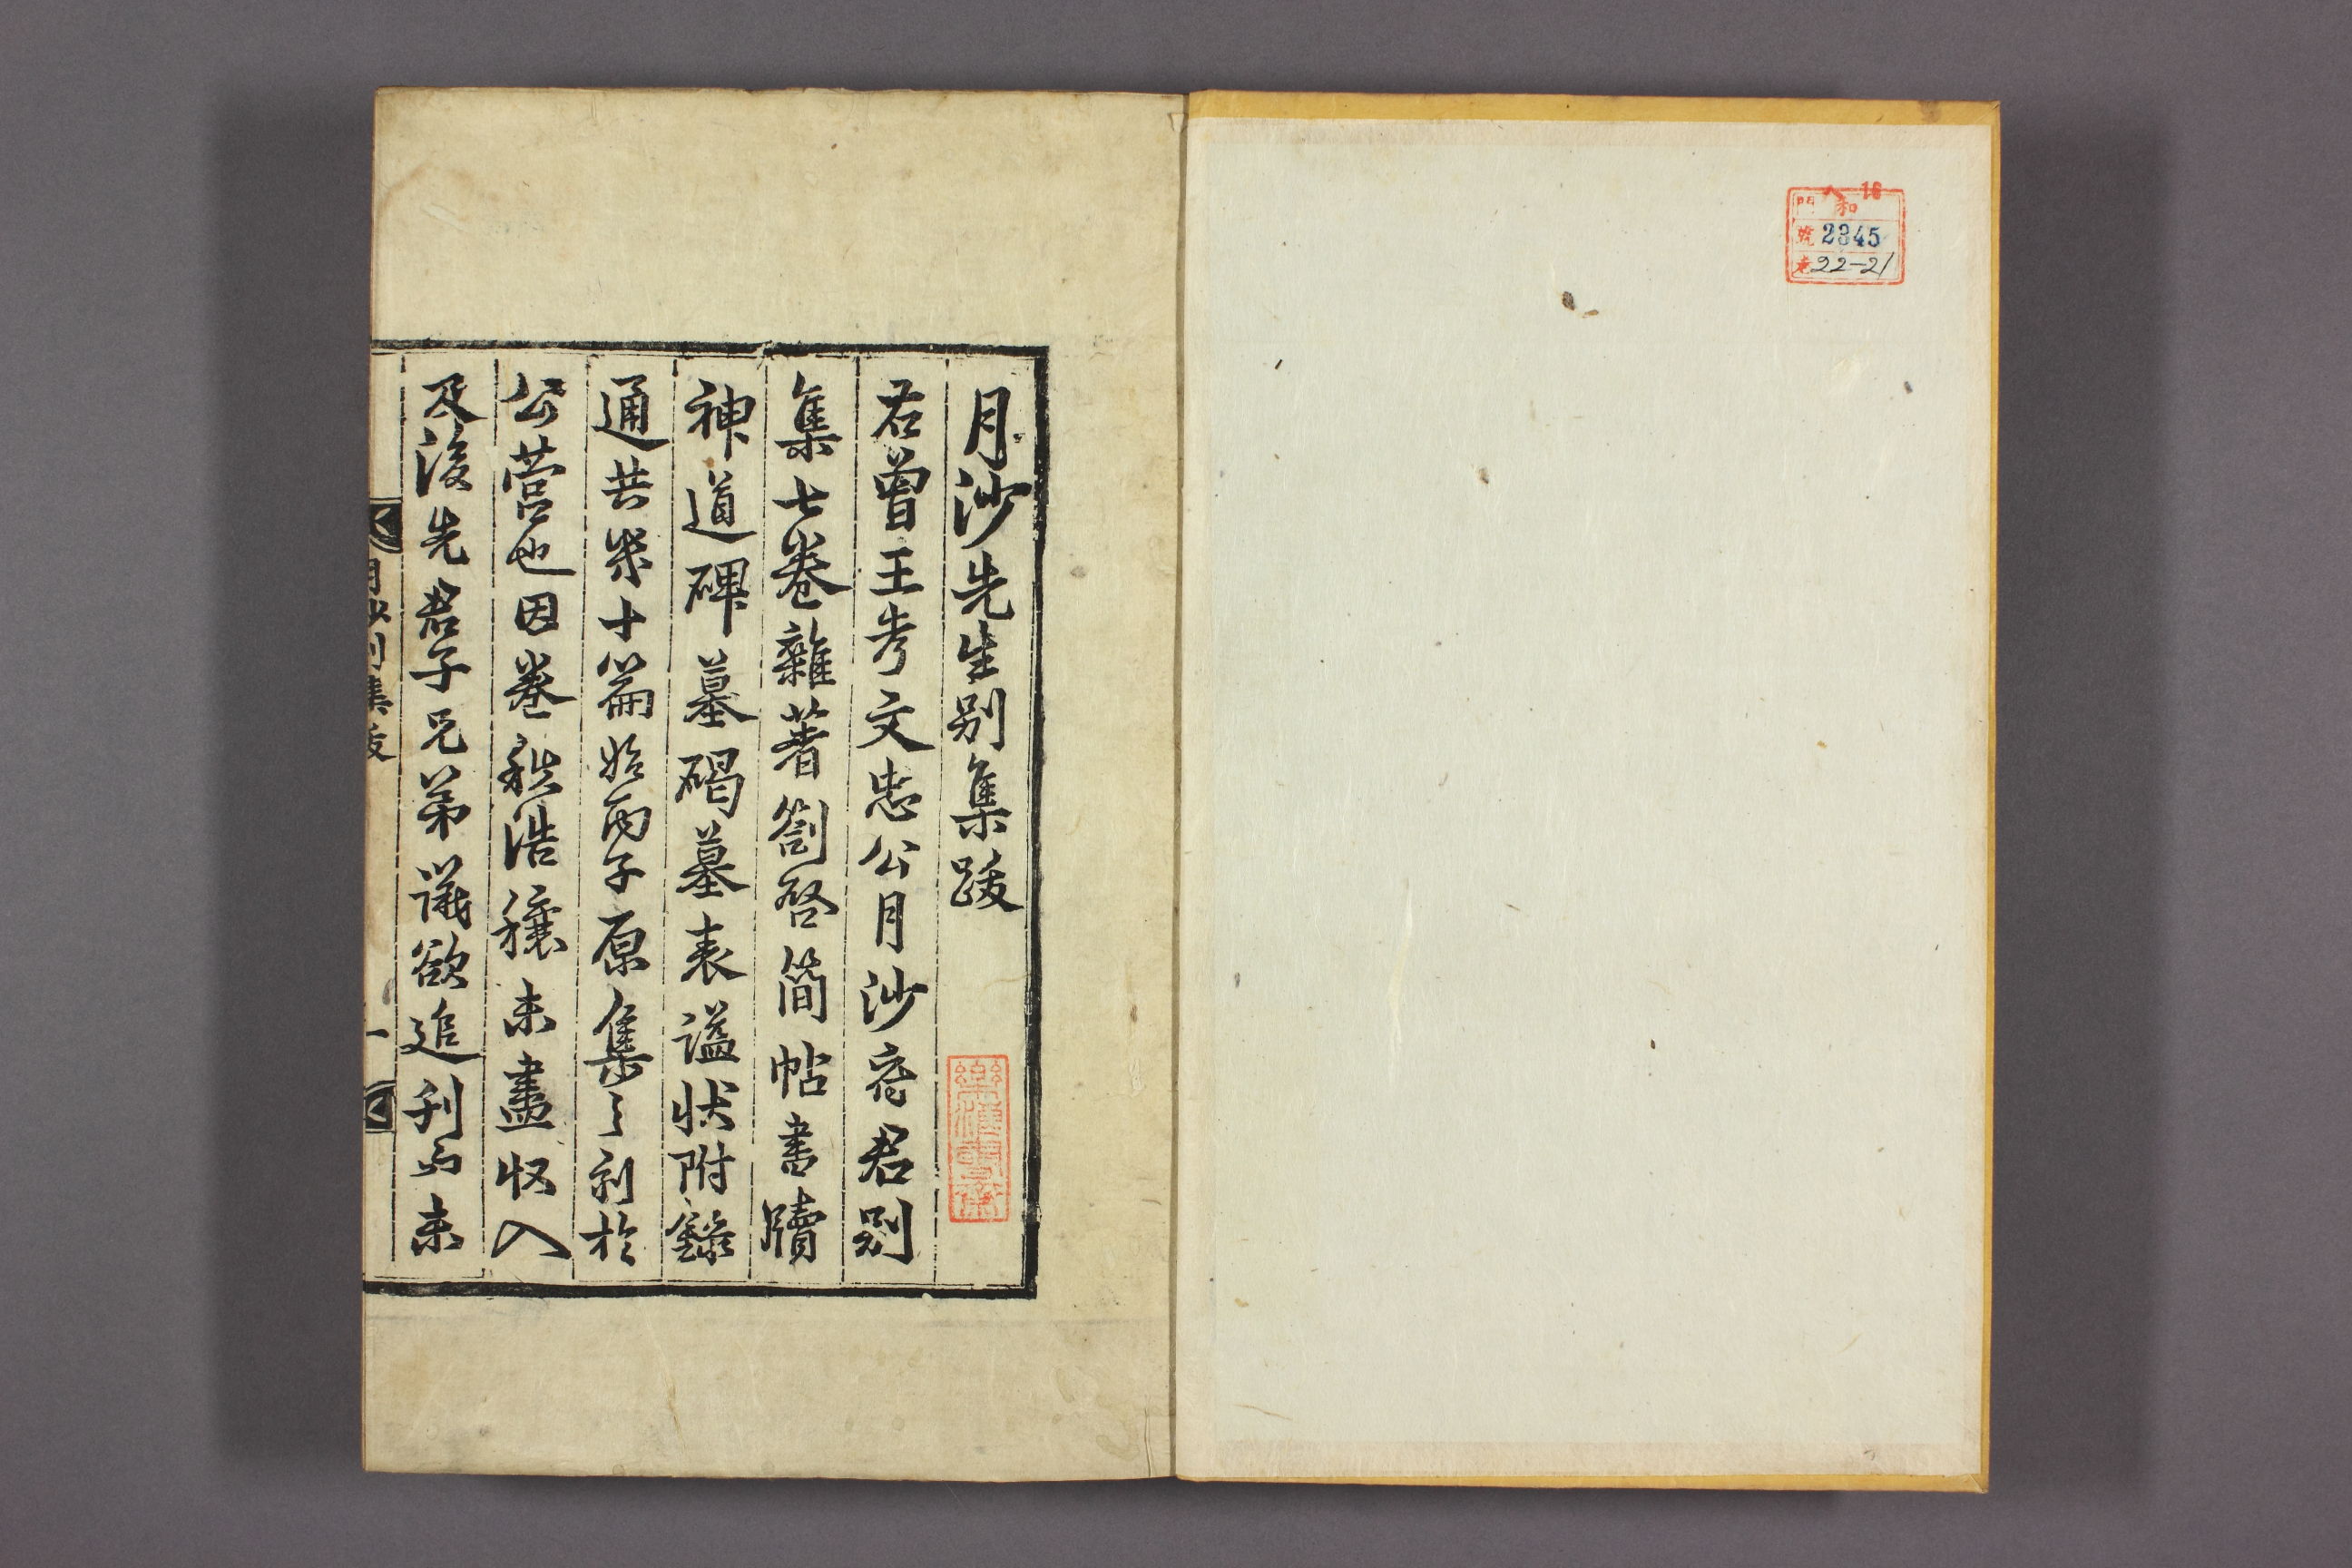 16
門 和
號 2345
卷 22-21
月沙先生別集跋
右曾王考文忠公月沙府君別
集七卷雜著劄啓簡帖書牘
神道碑墓碣墓表謚狀附錄
通共幾十篇始丙子原集之刊於
公營也因卷秩浩穰未盡収入
及後先君子兄弟議欲追刊而未
月沙別集跋 一